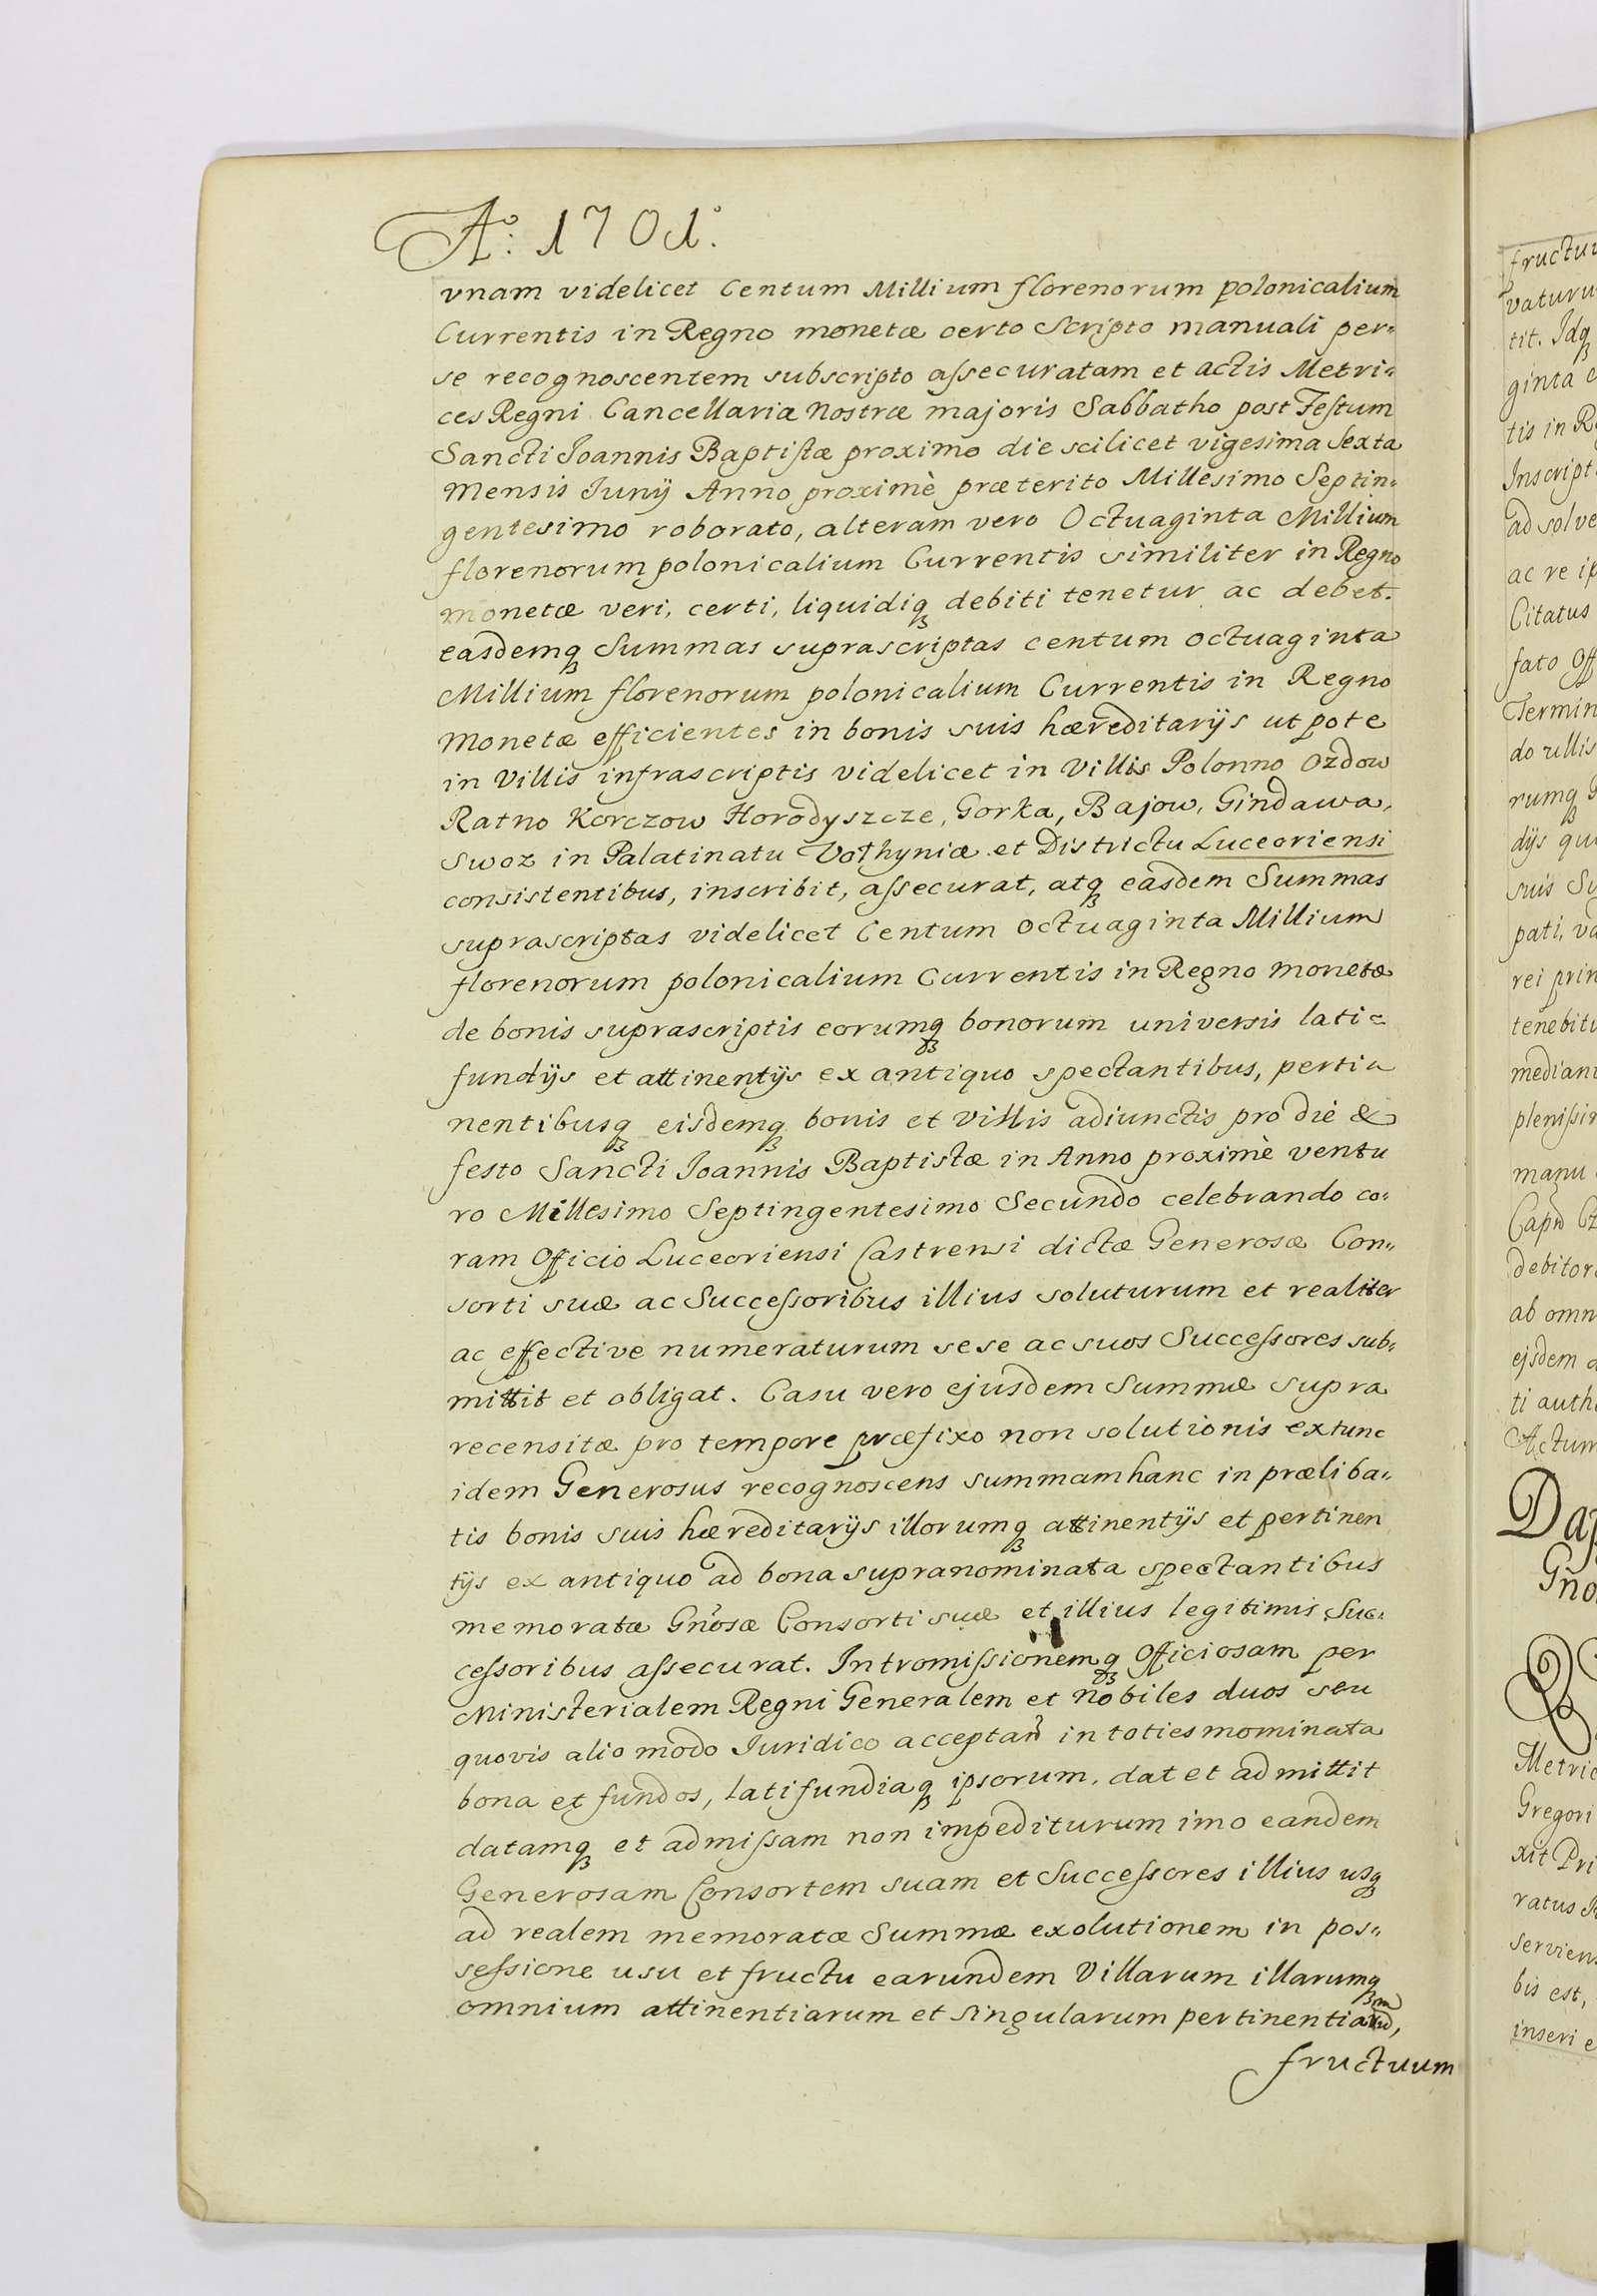 Ao: 1701o.
vnam videlicet Centum Millium florenorum polonicalium
Currentis in Regno monetæ certo Scripto manuali per=
se recognoscentem subscripto assecuratam et actis Metri=
ces Regni Cancellaria Nostræ majoris Sabbatho post Festum
Sancti Joannis Baptistæ proximo die scilicet vigesima Sexta
Mensis Junij Anno proximè præterito Millesimo Septin=
gentesimo roborato, alteram vero Octuaginta Millium
florenorum polonicalium Currentis similiter in Regno
monetæ veri, certi, liquidiq debiti tenetur ac debet.
easdemq Summas suprascriptas centum octuaginta
Millium florenorum polonicalium Currentis in Regno
Monetæ efficientes in bonis suis hæreditarijs utpote
in Villis infrascriptis videlicet in Villis Polonno Ozdow
Ratno Korczow Horodyszcze, Gorka, Bajow, Gindawa,
Swoz in Palatinatu Volhyniæ et Districtu Luceoriensi
consistentibus, inscribit, assecurat, atq easdem Summas
suprascriptas videlicet Centum octuaginta Millium
florenorum polonicalium Currentis in Regno monetæ
de bonis suprascriptis eorumq bonorum universis lati=
fundijs et attinentijs ex antiquo spectantibus, perti=
nentibusq eisdemq bonis et villis adiunctis pro die &
festo Sancti Joannis Baptistæ in Anno proximè ventu
ro Millesimo Septingentesimo Secundo celebrando co=
ram Officio Luceoriensi Castrensi dictæ Generosæ Con=
sorti suæ ac Successoribus illius soluturum et realiter
ac effective numeraturum sese ac suos Successores sub=
mittit et obligat. Casu vero ejusdem Summæ supra
recensitæ pro tempore præfixo non solutionis extunc
idem Generosus recognoscens summam hanc in præliba=
tis bonis suis hæreditarijs illorumq attinentijs et pertinen
tijs ex antiquo ad bona supranominata spectantibus
memoratæ Gnosæ Consorti suæ et illius legitimis Suc=
cessoribus assecurat. Intromissionemq Officiosam per
Ministerialem Regni Generalem et nobiles duos seu
quovis alio modo Juridico acceptan in toties mominata
bona et fundos, latifundiaq ipsorum, dat et admittit
datamq et admissam non impediturum imo eandem
Generosam Consortem suam et Successores illius usq
ad realem memoratæ Summæ exolutionem in pos=
sessione usu et fructu earundem Villarum illarumq
omnium attinentiarum et singularum pertinentiarum,
fructuum